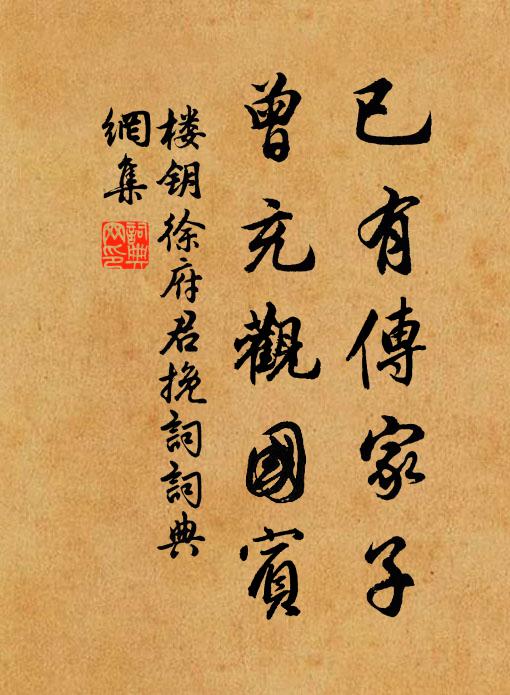 已有傳家子
曾充觀國賓
楼钥徐府君挽詞詞典
網集
詞典
网印